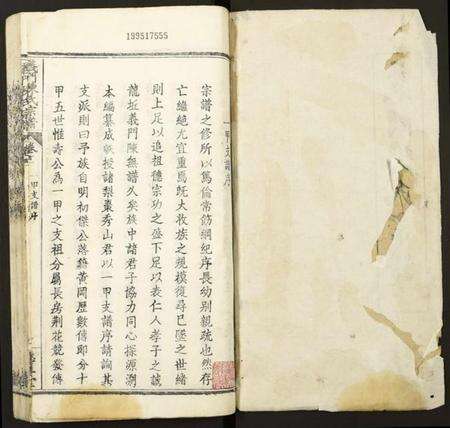 199517555
一甲支譜序
宗譜之修所以篤倫常飭綱紀序長幼別親疏也然存
亡繼絕尤宜重焉既大收族之規模復尋已墜之世緒
則上足以追祖德宗功之盛下足以表仁人孝子之誠
龍坵義門陳無譜久矣族中諸君子協力同心探源溯
本編纂成帙授諸梨棗秀山君以一甲支譜序請詢其
支派則曰予族自明初傑公落籍黃岡歷數傳即分十
甲五世惟壽公為一甲之支祖分屬長房荊花競發傳
甲支譜序